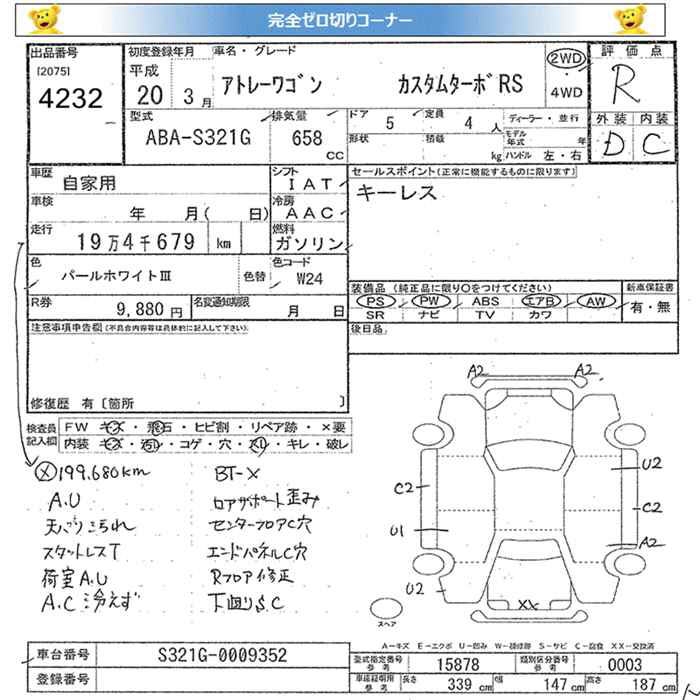 完全ゼロ切りコーナー
出品番号
[2075]
4232
初度登録年月
平成
20 3月
車名・グレード
アトレーワゴン カスタムターボRS
2WD
・
4WD
評価点
R
外装 内装
D C
型式
ABA-S321G
排気量
658
CC
ドア 5
定員 4 人
形状
積載 kg
ディーラー・並行
モデル年式 年
ハンドル 左・右
車歴
自家用
シフト
IAT
車検
年 月( 日)
冷房
AAC
走行
19万4千679 km
燃料
ガソリン
色
パールホワイトⅢ
色替
色コード
W24
R券
9,880 円
名変通知期限
月 日
セールスポイント(正常に機能するものに限ります)
キーレス
装備品(純正品に限り○をつけてください)
PS PW ABS エアB AW
SR ナビ TV カワ
新車保証書
有・無
後日品
注意事項申告欄(不具合内容等は具体的に記入して下さい)
修復歴 有〔箇所 〕
検査員
記入欄
FW キズ・飛石・ヒビ割・リペア跡・×要
内装 キズ・汚れ・コゲ・穴・スレ・キレ・破レ
Ⓧ199.680km
A.U
天バリこられ
スタットレスT
荷室A.U
A.C冷えず
BT-X
ロアサポート歪み
センターフロアC穴
エンドパネルC穴
Rフロア修正
下廻りS.C
A2 A2
U2
C2
C2
U1
A2
U2
XX
スペア
A―キズ E―エクボ U―凹み W―補修跡 S―サビ C―腐食 XX―交換済
車台番号
S321G-0009352
登録番号
型式指定番号
参考
15878
類別区分番号
参考
0003
車庫証明用
参考
長さ 339 cm
幅 147 cm
高さ 187 cm